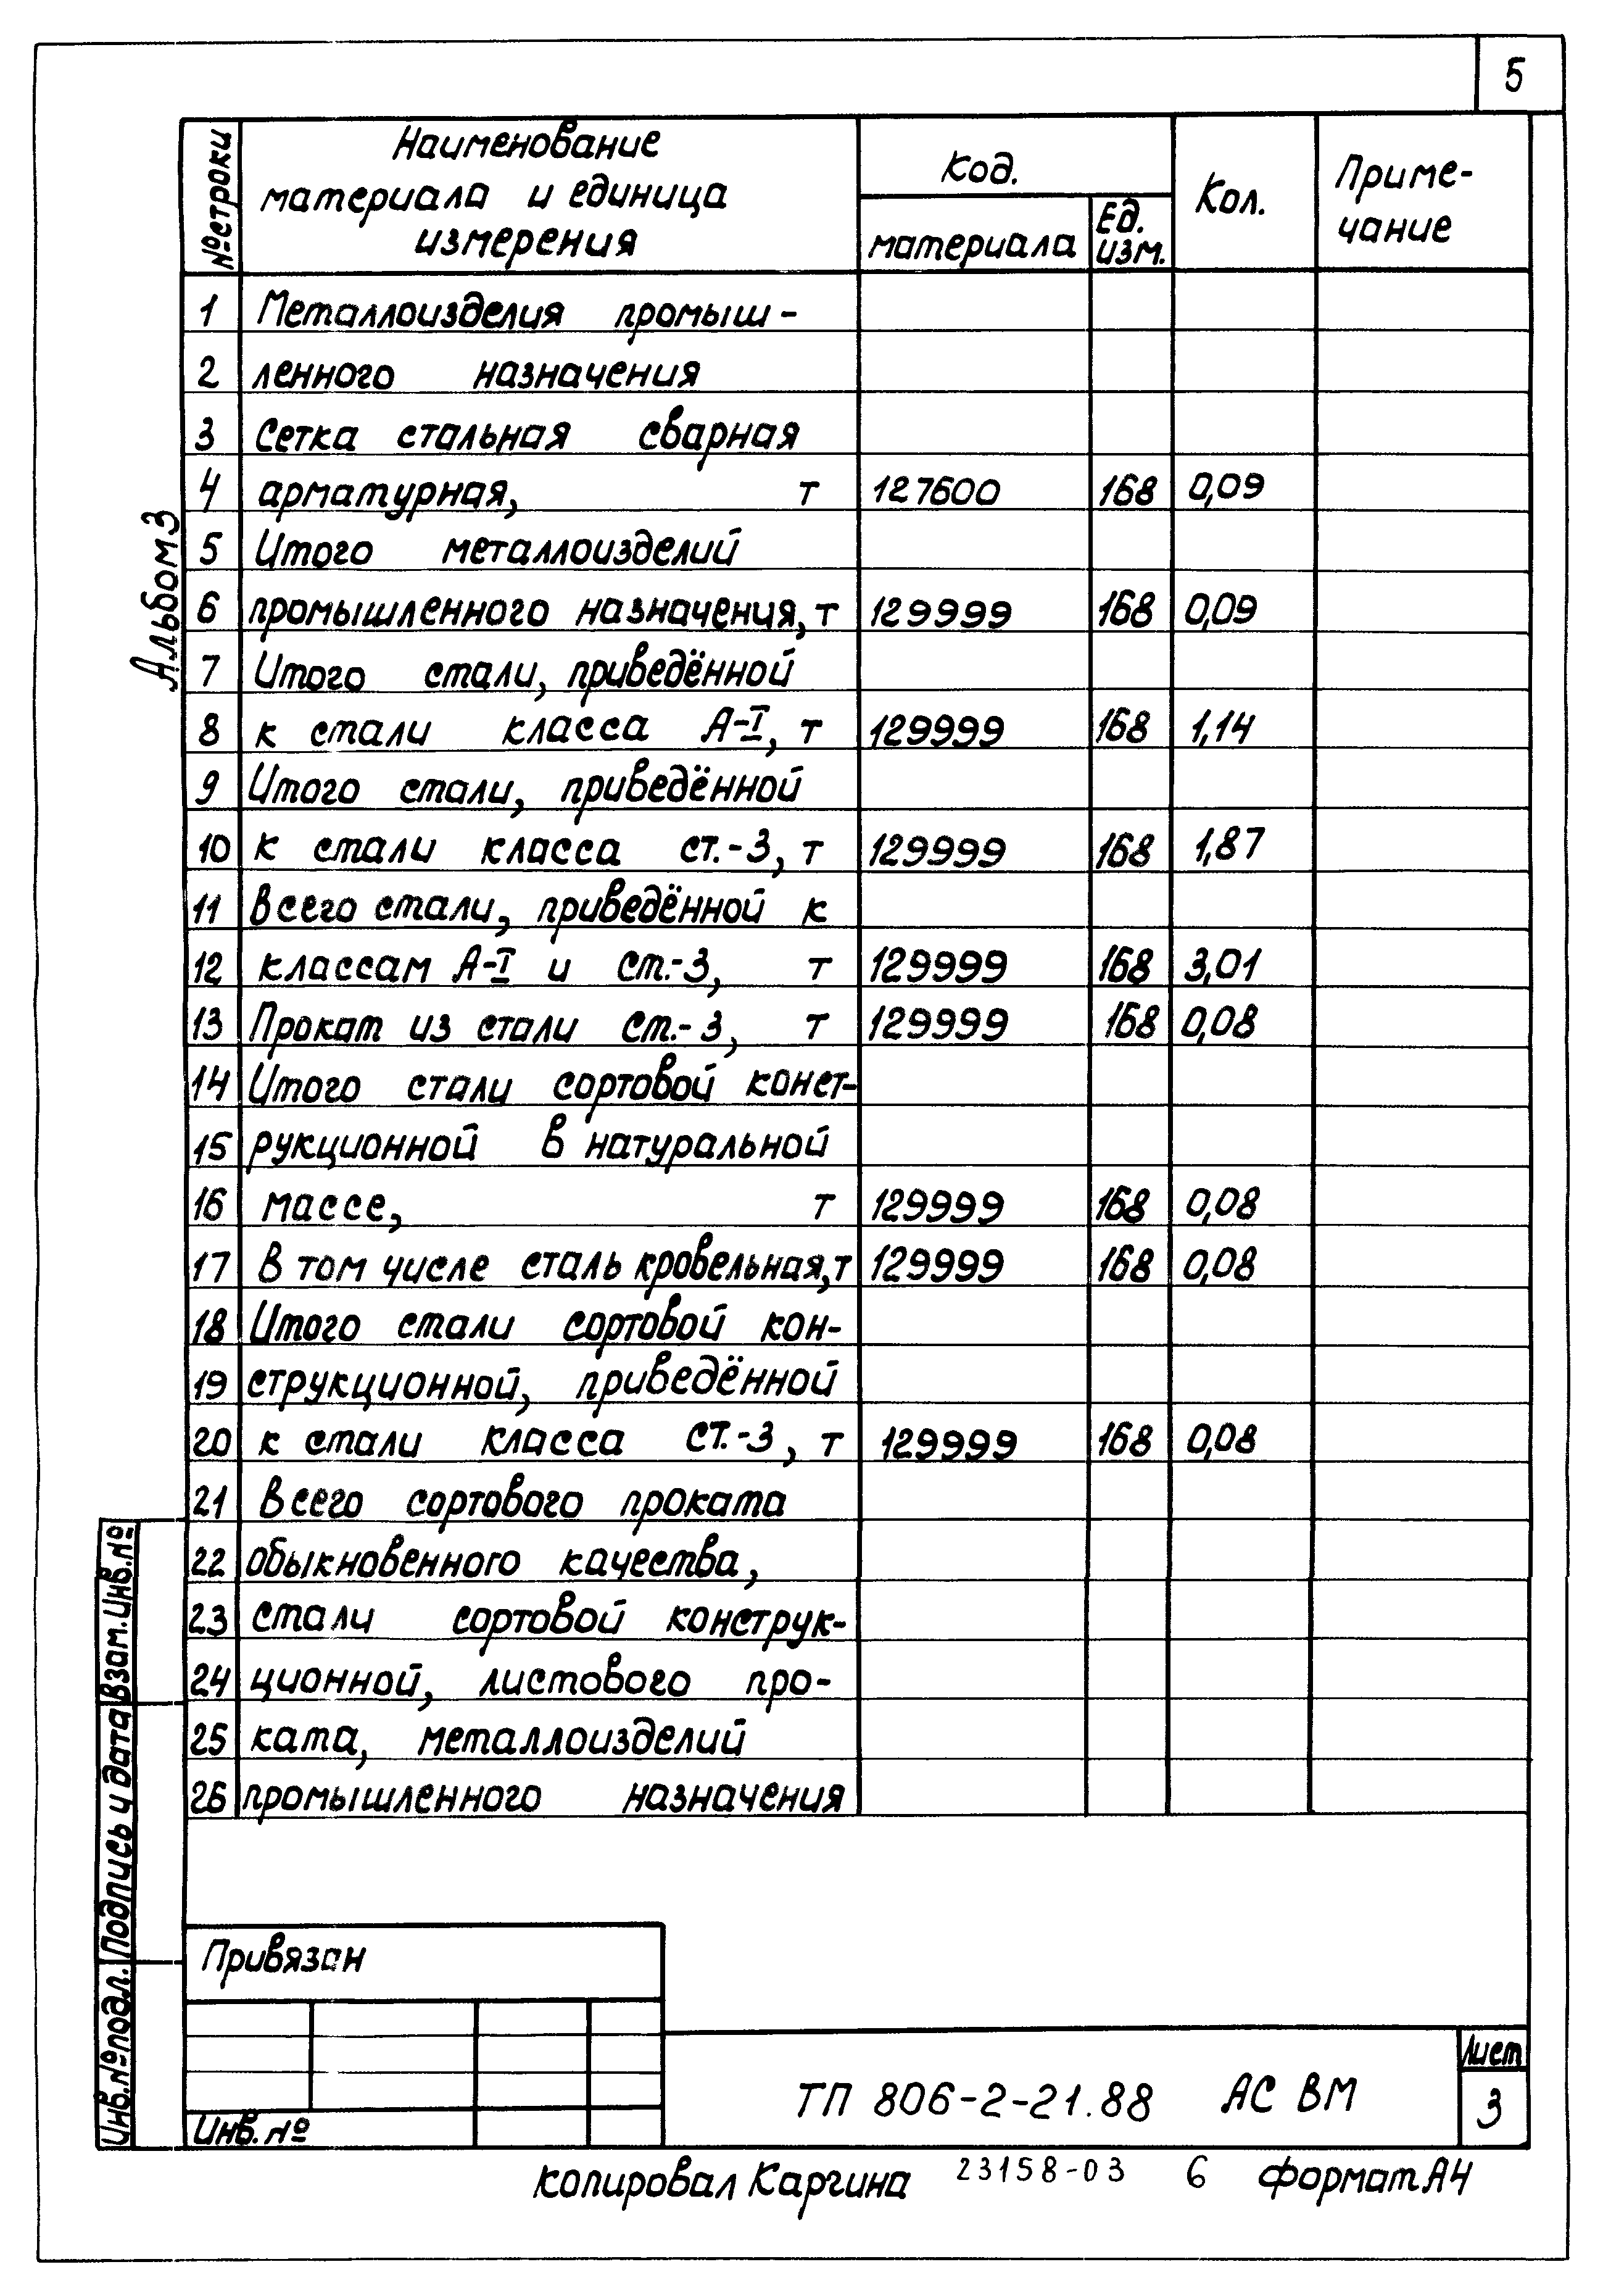 5
№ строки
Наименование
материала и единица
измерения
Код.
материала
Ед.
изм.
Кол.
Приме-
чание
1 Металлоизделия промыш-
2 ленного назначения
3 Сетка стальная сварная
4 арматурная, т 127600 168 0,09
5 Итого металлоизделий
6 промышленного назначения, т 129999 168 0,09
7 Итого стали, приведённой
8 к стали класса А-I, т 129999 168 1,14
9 Итого стали, приведённой
10 к стали класса ст.-3, т 129999 168 1,87
11 Всего стали, приведённой к
12 классам А-I и ст.-3, т 129999 168 3,01
13 Прокат из стали ст.-3, т 129999 168 0,08
14 Итого стали сортовой конст-
15 рукционной в натуральной
16 массе, т 129999 168 0,08
17 В том числе сталь кровельная, т 129999 168 0,08
18 Итого стали сортовой кон-
19 струкционной, приведённой
20 к стали класса ст.-3, т 129999 168 0,08
21 Всего сортового проката
22 обыкновенного качества,
23 стали сортовой конструк-
24 ционной, листового про-
25 ката, металлоизделий
26 промышленного назначения
Альбом 3
Взам. Инв. №
Подпись и дата
Инв. № подл.
Привязан
Инв. №
ТП 806-2-21.88 АС ВМ
Лист
3
копировал Каргина 23158-03 6 формат А4